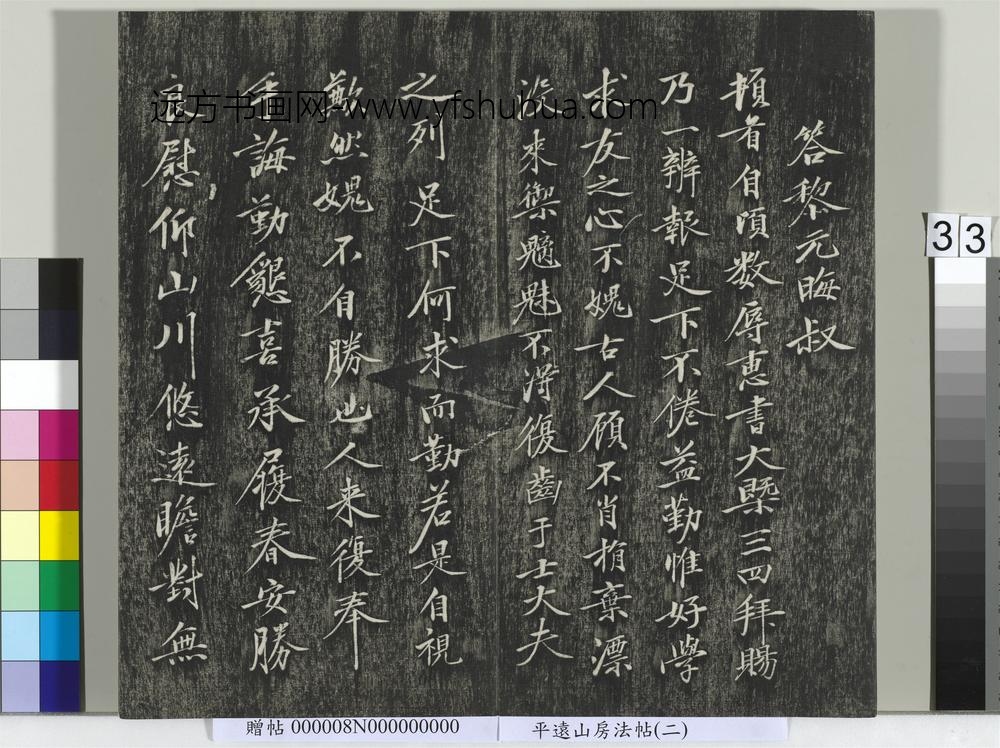 答黎元晦叔
頓首自頃数辱惠書大槩三四拜賜
乃一辨報足下不倦益勤惟好學
求友之心不媿古人顧不肖捐棄漂
流來禦魑魅不得復齒于士大夫
之列足下何求而勤若是自視
歉然媿不自勝此人来復奉
手誨勤懇喜承履春安勝
良慰仰山川悠遠瞻對無
远方书画网-www.yfshuhua.com
33
贈帖 000008N000000000
平遠山房法帖(二)